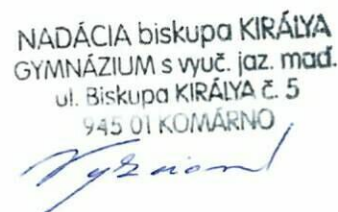 NADÁCIA biskupa KIRÁLYA
GYMNÁZIUM s vyuč. jaz. maď.
ul. Biskupa KIRÁLYA č. 5
945 01 KOMÁRNO